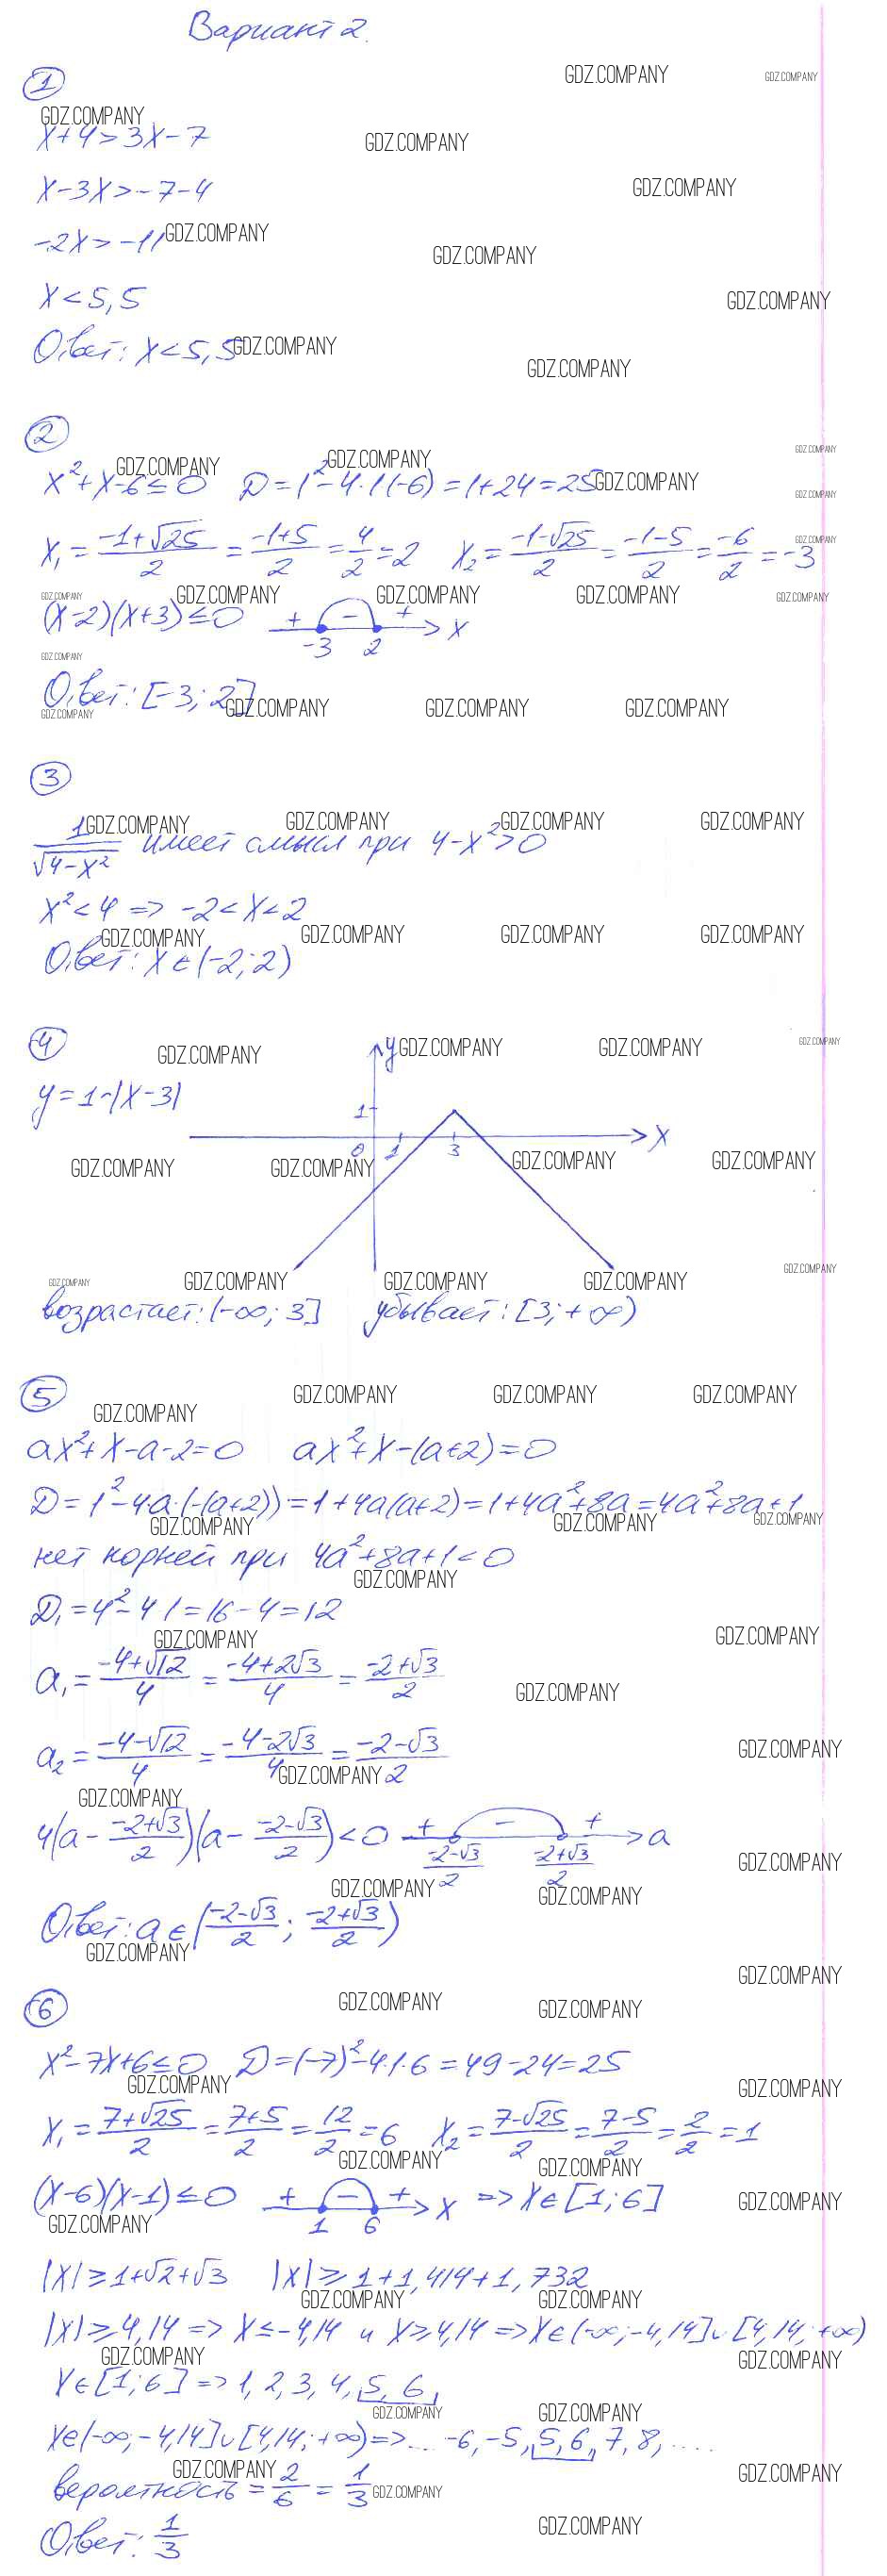 Вариант 2.
1
x+4>3x-7
x-3x>-7-4
-2x>-11
x<5,5
Ответ: x<5,5
2
x²+x-6≤0 D=1²-4·1(-6)=1+24=25
x₁=(-1+√25)/2=(-1+5)/2=4/2=2 x₂=(-1-√25)/2=(-1-5)/2=-6/2=-3
(x-2)(x+3)≤0 + - + x
-3 2
Ответ: [-3; 2]
3
1/√(4-x²) имеет смысл при 4-x²>0
x²<4 => -2<x<2
Ответ: x∈(-2;2)
4
y
y=1-|x-3|
1
x
0 1 3
возрастает: (-∞; 3] убывает: [3; +∞)
5
ax²+x-a-2=0 ax²+x-(a+2)=0
D=1²-4·a·(-(a+2))=1+4a(a+2)=1+4a²+8a=4a²+8a+1
нет корней при 4a²+8a+1<0
D₁=4²-4·1=16-4=12
a₁=(-4+√12)/4=(-4+2√3)/4=(-2+√3)/2
a₂=(-4-√12)/4=(-4-2√3)/4=(-2-√3)/2
4(a-(-2+√3)/2)(a-(-2-√3)/2)<0 + - + a
(-2-√3)/2 (-2+√3)/2
Ответ: a∈((-2-√3)/2; (-2+√3)/2)
6
x²-7x+6≤0 D=(-7)²-4·1·6=49-24=25
x₁=(7+√25)/2=(7+5)/2=12/2=6 x₂=(7-√25)/2=(7-5)/2=2/2=1
(x-6)(x-1)≤0 + - + x => x∈[1;6]
1 6
|x|≥1+√2+√3 |x|≥1+1,414+1,732
|x|≥4,14 => x≤-4,14 и x≥4,14 => x∈(-∞;-4,14]∪[4,14;+∞)
x∈[1;6] => 1, 2, 3, 4, 5, 6,
x∈(-∞;-4,14]∪[4,14;+∞) => ... -6, -5, 5, 6, 7, 8, ....
вероятность = 2/6 = 1/3
Ответ: 1/3
GDZ.COMPANY